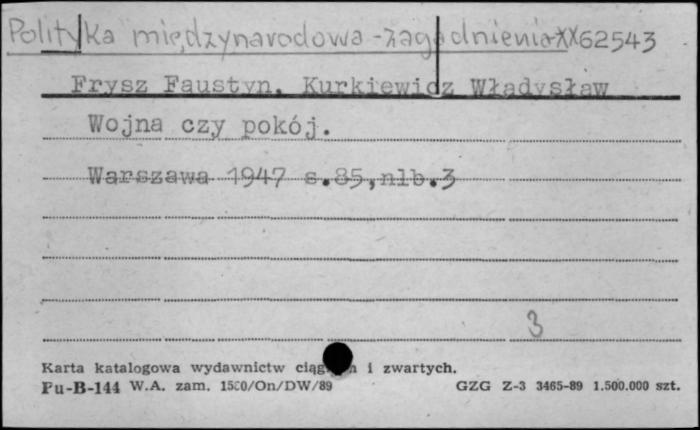 Polityka międzynarodowa - zagadnienia XX62543
Frysz Faustyn, Kurkiewicz Władysław
Wojna czy pokój.
Warszawa 1947 s.85,nlb.3
3
Karta katalogowa wydawnictw i zwartych.
Pu-B-144 W.A. zam. 1500/On/DW/89 GZG Z-3 3465-89 1.500.000 szt.